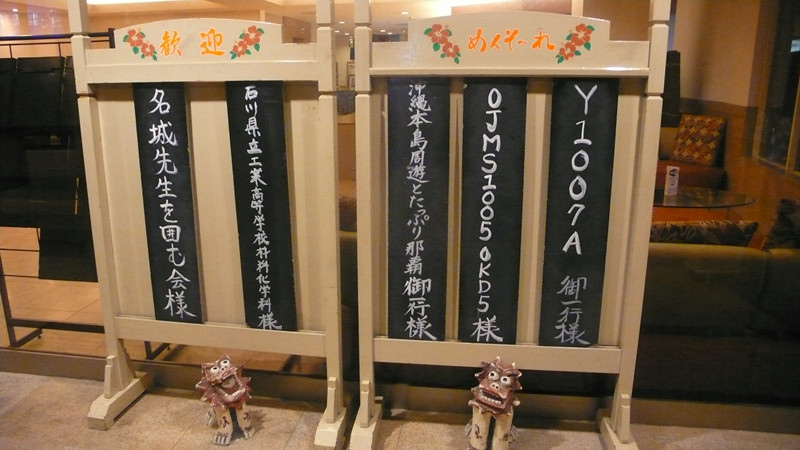 歓迎
めんそ〜れ
Y1007A 御一行様
OJMS1005OKD5様
沖縄本島周遊とたっぷり那覇御一行様
石川県立工業高等学校材料化学科様
名城先生を囲む会様